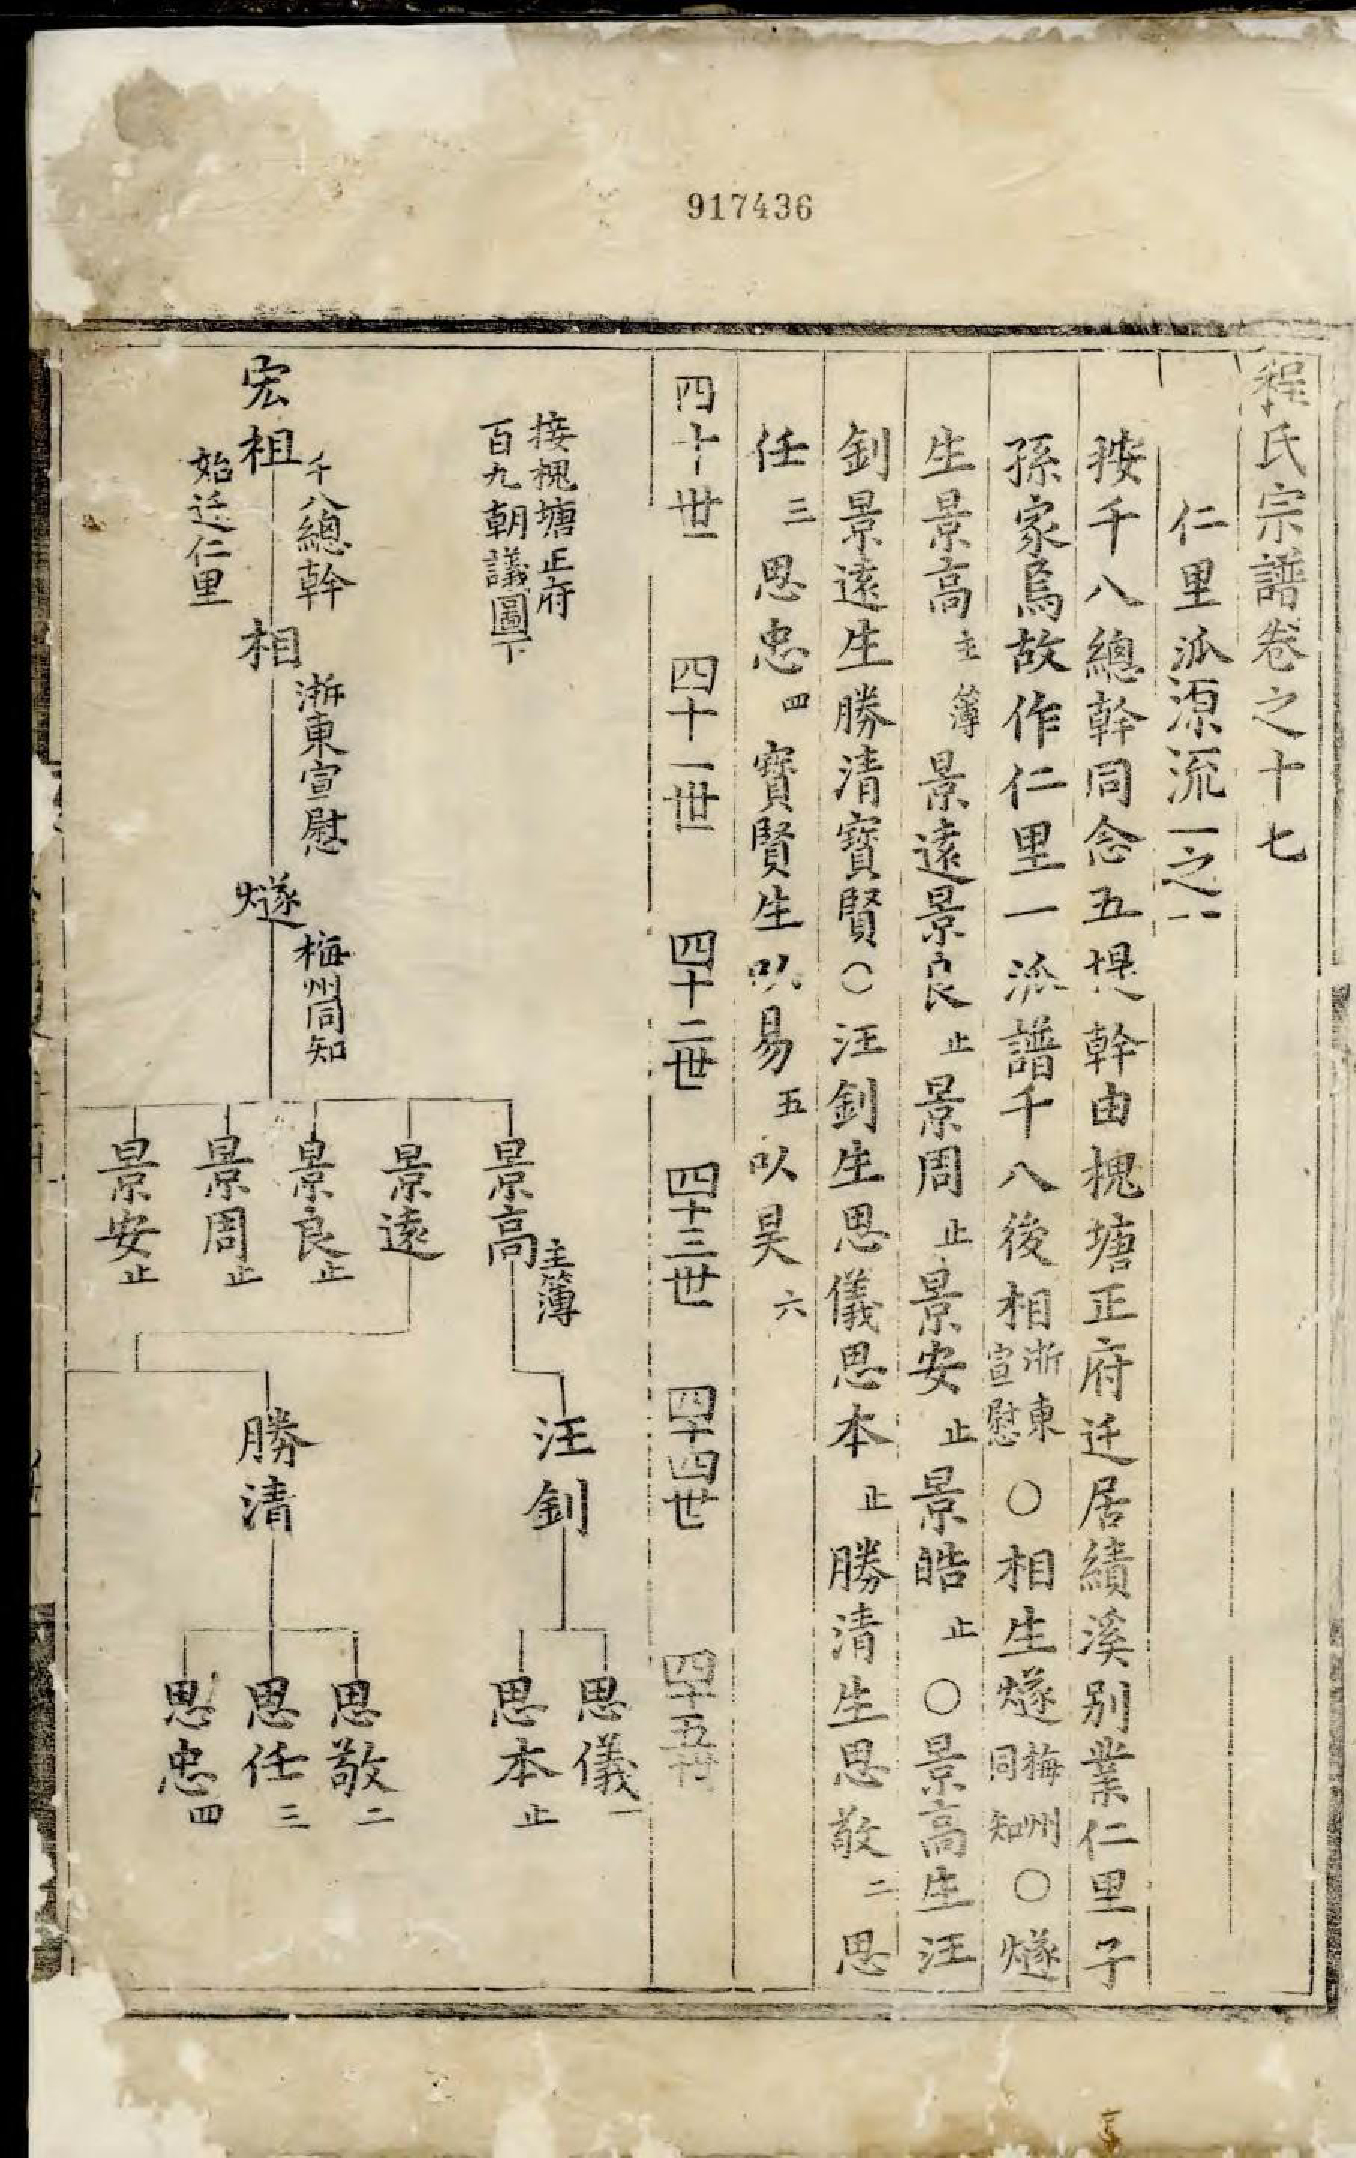 917436
程氏宗譜卷之十七
仁里派源流一之一
按千八總幹同念五提幹由槐塘正府迁居績溪別業仁里子
孫家焉故作仁里一派譜千八後相浙東宣慰○相生燧梅州同知○燧
生景高主簿景遠景良止景周止景安止景皓止○景高生汪
釗景遠生勝清寶賢○汪釗生思儀思本止勝清生思敬二思
任三思忠四寶賢生以易五以昊六
四十世 四十一世 四十二世 四十三世 四十四世 四十五世
接槐塘正府
百九朝議圖下
景高主簿 汪釗 思儀一
思本止
宏祖千八總幹始迁仁里 相浙東宣慰 燧梅州同知
景遠 勝清 思敬二
景良止 思任三
景周止 思忠四
景安止